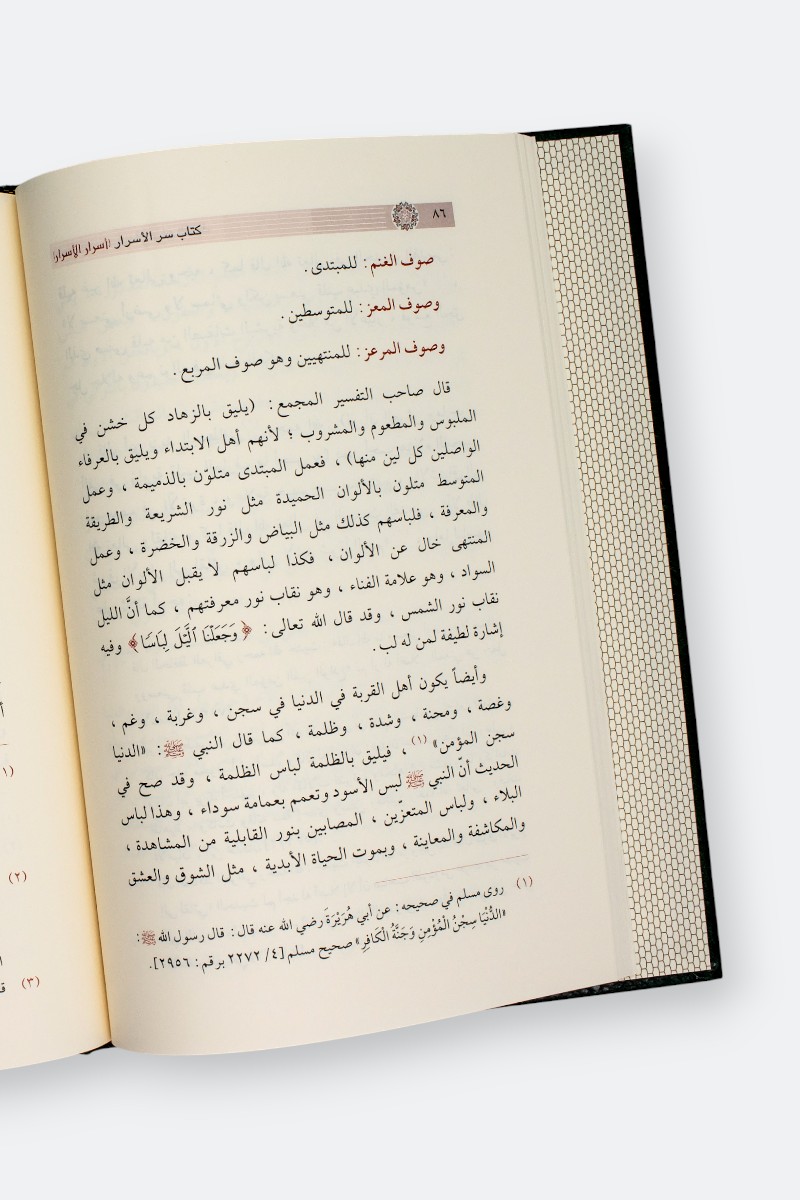 ٨٦
كتاب سر الأسرار (أسرار الأسرار)
صوف الغنم : للمبتدى .
وصوف المعز : للمتوسطين .
وصوف المرعز : للمنتهيين وهو صوف المربع .
قال صاحب التفسير المجمع : (يليق بالزهاد كل خشن في
الملبوس والمطعوم والمشروب ؛ لأنهم أهل الابتداء ويليق بالعرفاء
الواصلين كل لين منها) ، فعمل المبتدى متلوّن بالذميمة ، وعمل
المتوسط متلون بالألوان الحميدة مثل نور الشريعة والطريقة
والمعرفة ، فلباسهم كذلك مثل البياض والزرقة والخضرة ، وعمل
المنتهى خال عن الألوان ، فكذا لباسهم لا يقبل الألوان مثل
السواد ، وهو علامة الفناء ، وهو نقاب نور معرفتهم ، كما أنَّ الليل
نقاب نور الشمس ، وقد قال الله تعالى : ﴿وَجَعَلْنَا ٱلَّيْلَ لِبَاسًا﴾ وفيه
إشارة لطيفة لمن له لب .
وأيضاً يكون أهل القربة في الدنيا في سجن ، وغربة ، وغم ،
وغصة ، ومحنة ، وشدة ، وظلمة ، كما قال النبي ﷺ : «الدنيا
سجن المؤمن» (١) ، فيليق بالظلمة لباس الظلمة ، وقد صح في
الحديث أنّ النبي ﷺ لبس الأسود وتعمم بعمامة سوداء ، وهذا لباس
البلاء ، ولباس المتعزّين ، المصابين بنور القابلية من المشاهدة ،
والمكاشفة والمعاينة ، وبموت الحياة الأبدية ، مثل الشوق والعشق
(١) روى مسلم في صحيحه : عن أبي هُرَيْرَةَ رضي الله عنه قال : قال رسول الله ﷺ :
«الدُّنْيَا سِجْنُ الْمُؤْمِنِ وَجَنَّةُ الْكَافِرِ» صحيح مسلم [٤/ ٢٢٧٢ برقم : ٢٩٥٦].
(١)
(٢)
(٣)